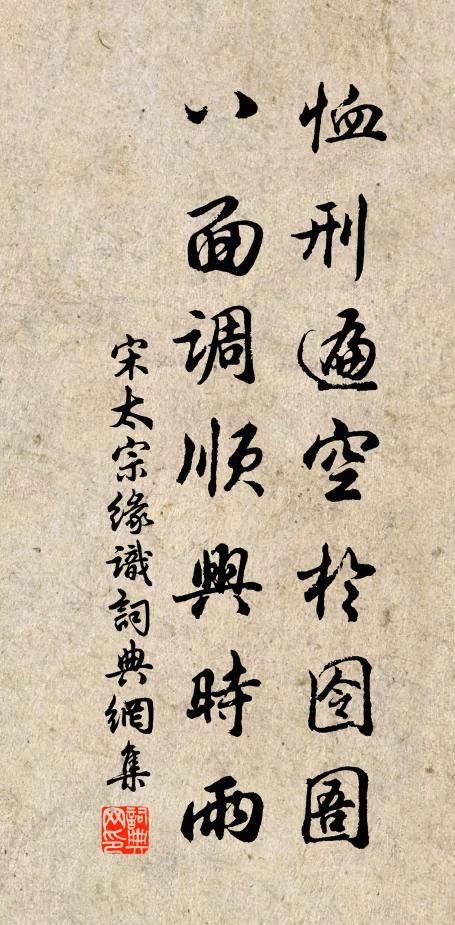 恤刑遍空於囹圄
八面调顺興時雨
宋太宗緣識詞典網集
詞典網印